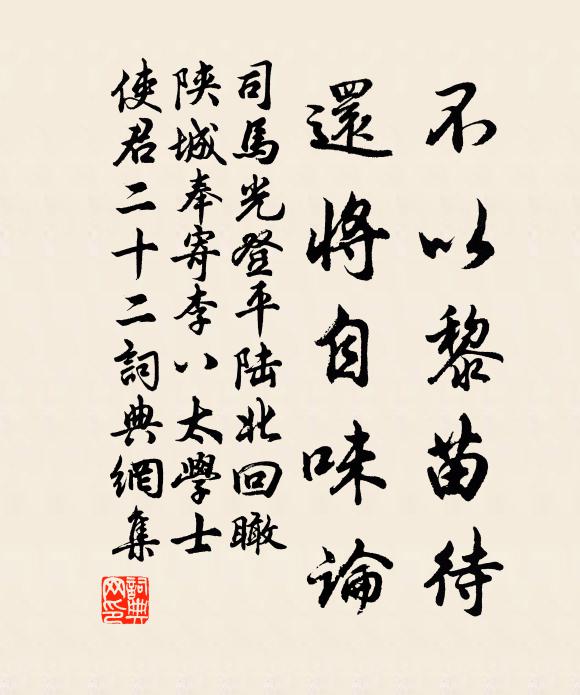 不以黎苗待
還將自味論
司馬光登平陸北回瞰
陝城奉寄李八太學士
使君二十二詞典網集
詞典網印